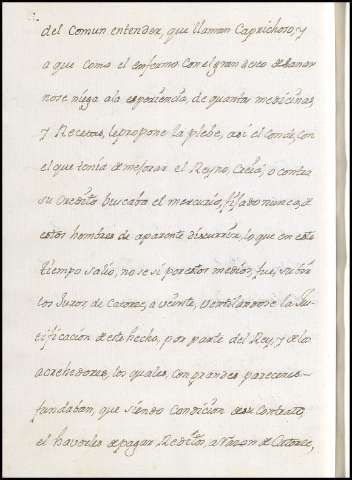 del Comun entender, que llaman Caprichoso, y
a que como el enfermo Con el gran deseo de sanar
no se niega ala esperiencia, de quantas medicinas,
y Recetas, le propone la plebe, asi el Conde, con
el que tenia de mejorar el Reyno, Creia, o contra
su Credito buscaba el mercurio, fijado nunca, de
estos hombres de aparente discurrir, lo que en este
tiempo salio, no se si por estos medios, fue, subir
los Juros, de Catorze, a veinte, ventilandose la Jus-
tificacion de este hecho, por parte del Rey, y de los
acrehedores, los quales, con grandes pareceres
fundaban, que siendo Condicion de su Contrato,
el haverles de pagar Reditos, a Razon de Catorze,